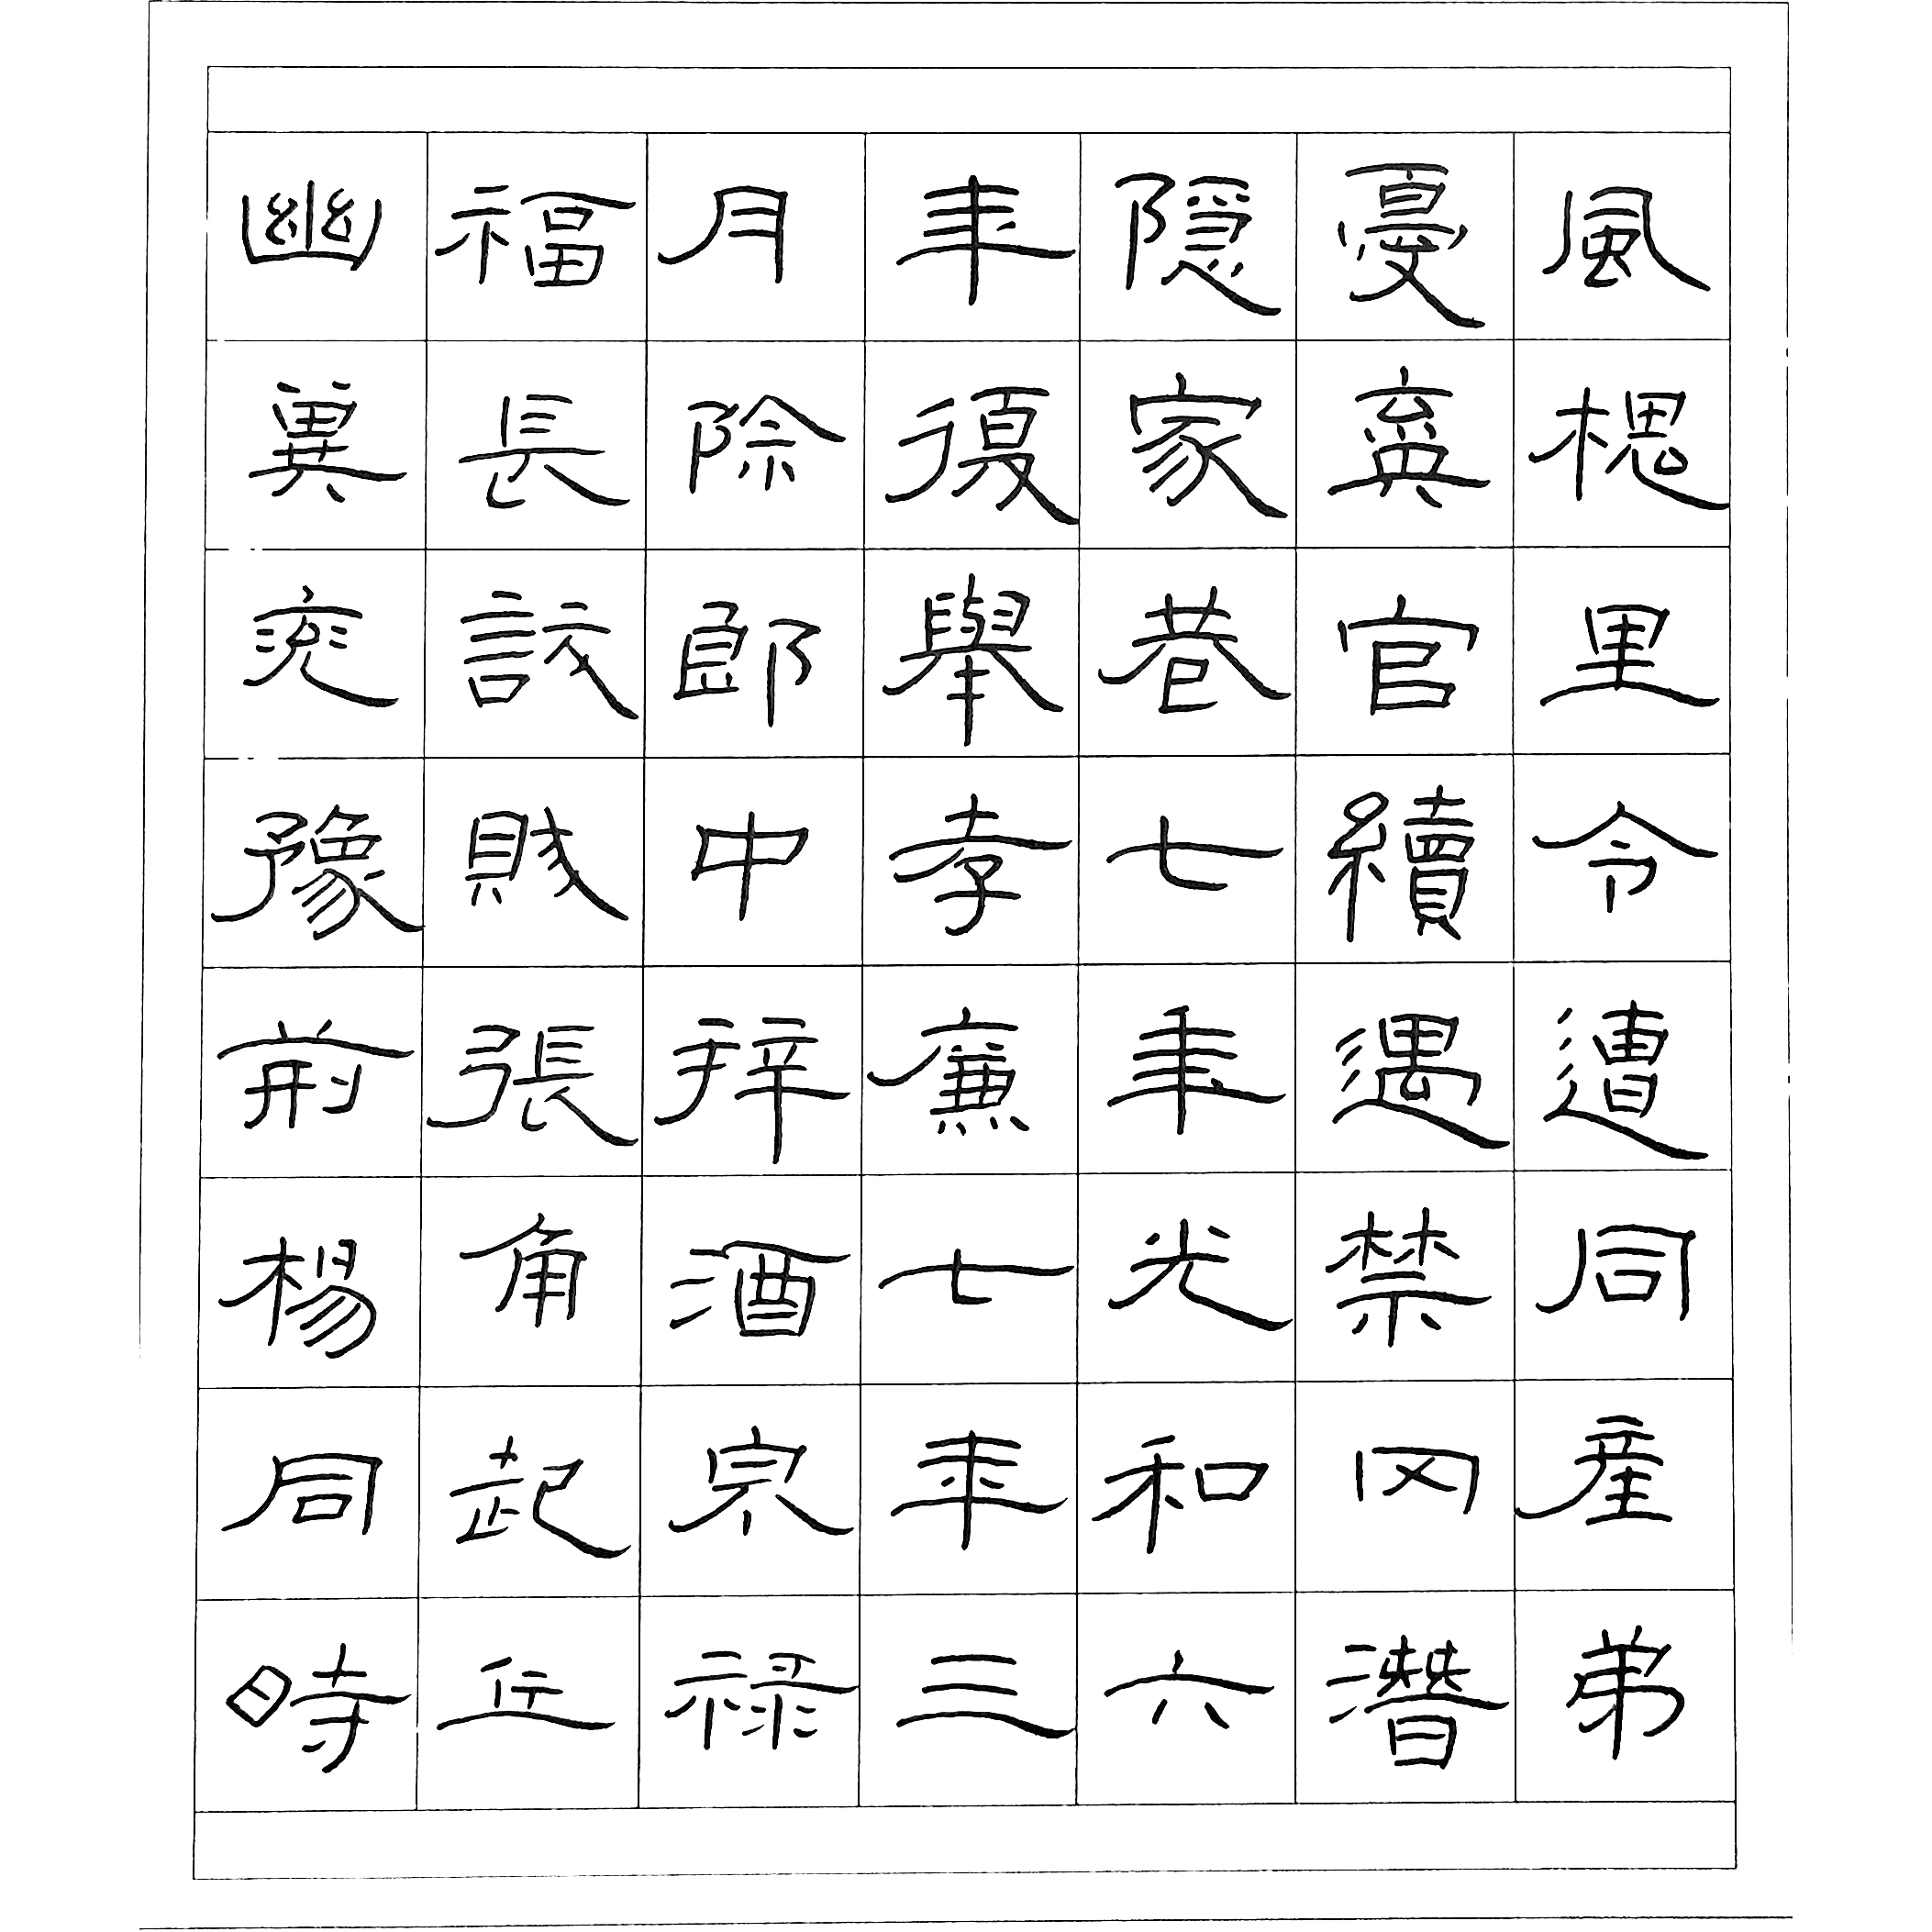 風槐里令遭同産弟
憂棄官續遇禁冈潛
隱家巷七年光和六
年復舉孝廉七年三
月除郎中拜酒泉祿
福長訞賊張角起兵
幽冀兖豫荊楊同時